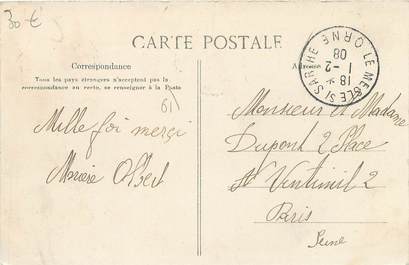 30 €
CARTE POSTALE
Correspondance
Tous les pays étrangers n'acceptent pas la
correspondance au recto, se renseigner à la Poste
61
Mille foi merçi
Albert
Adresse
LE MESLE S/ SARTHE ORNE
18 *
1 -2
08
Monsieur et Madame
Dupont 2 Place
St Vintimil 2
Paris
Seine